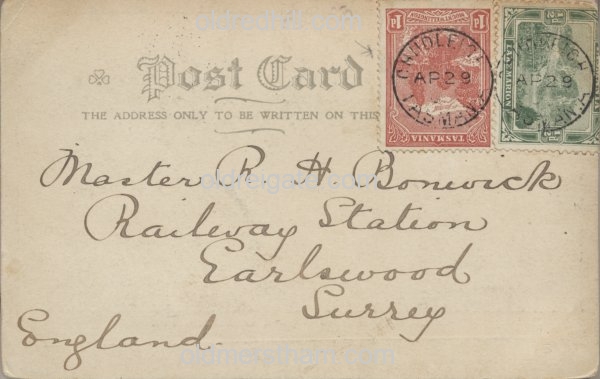 oldredhill.com
Post Card
THE ADDRESS ONLY TO BE WRITTEN ON THIS
1d 1d
TASMANIA
AP 29
TASMANIA
AP 29
Master R H Bonwick
oldreigate.com
Railway Station
Earlswood
Surrey
England
oldmerstham.com